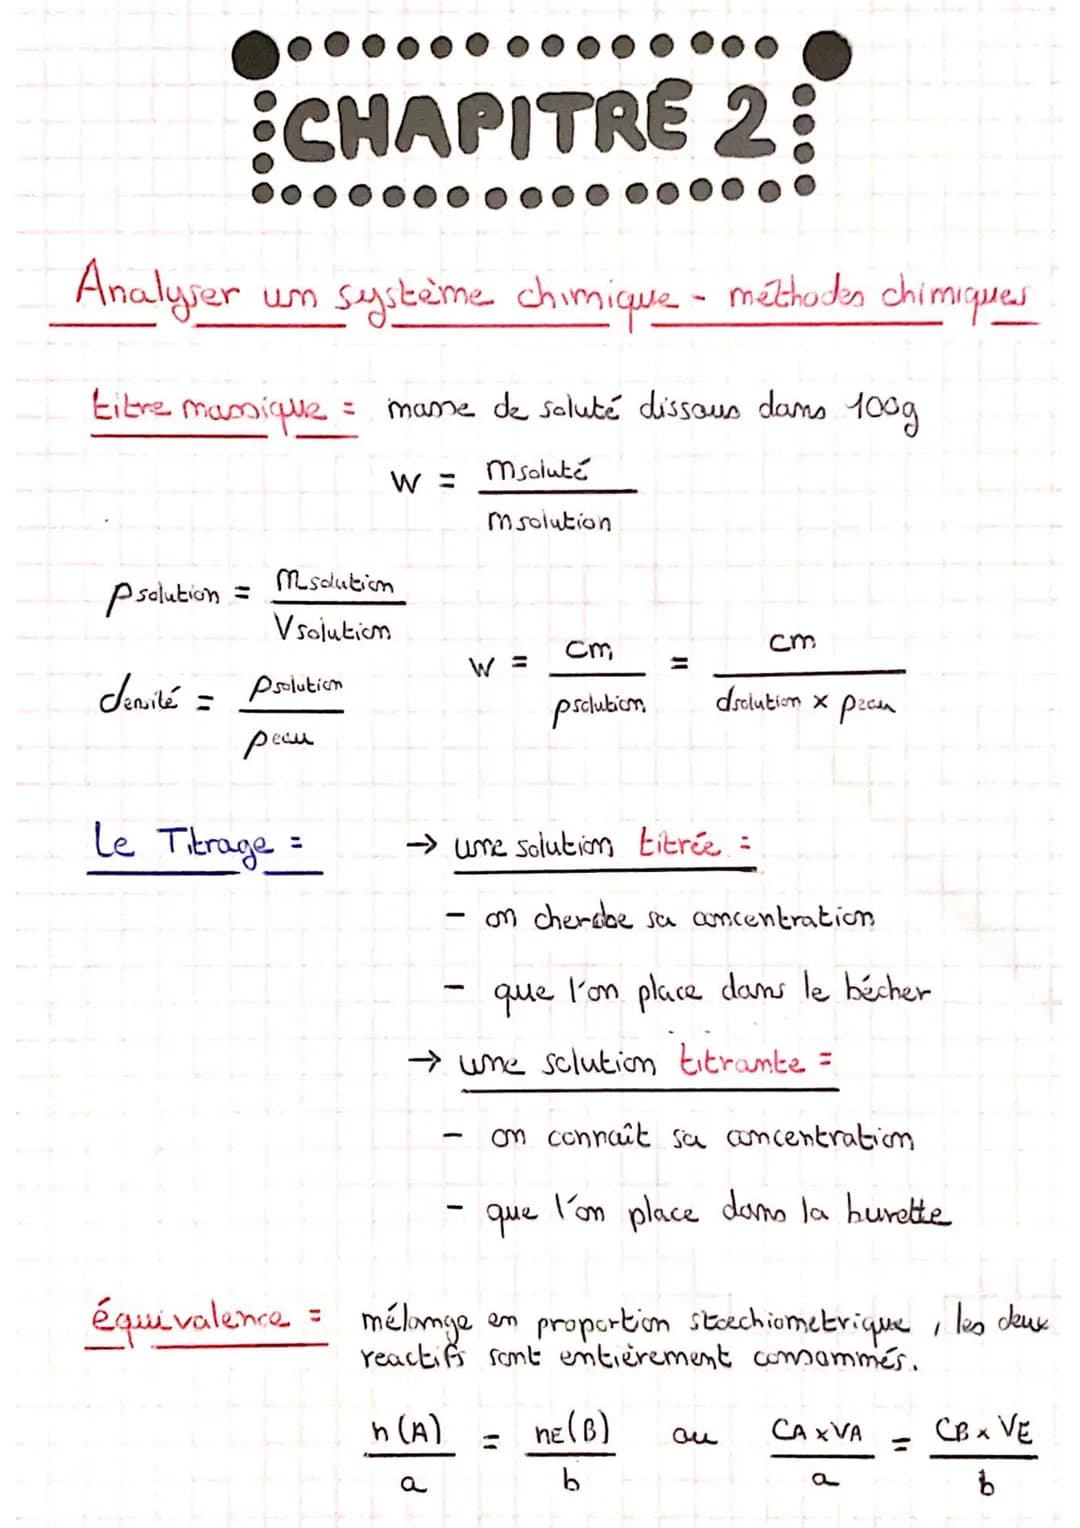 CHAPITRE 2
Analyser un système chimique - méthodes chimiques
titre massique = masse de soluté dissous dans 100g
w = msoluté / msolution
ρsolution = msolution / Vsolution
densité = ρsolution / ρeau
w = cm / ρsolution = cm / dsolution × ρeau
Le Titrage =
→ une solution titrée =
- on cherche sa concentration
- que l'on place dans le bécher
→ une solution titrante =
- on connaît sa concentration
- que l'on place dans la burette
équivalence = mélange en proportion stoechiometrique, les deux
reactifs sont entièrement consommés.
n(A) / a = nE(B) / b ou CA × VA / a = CB × VE / b